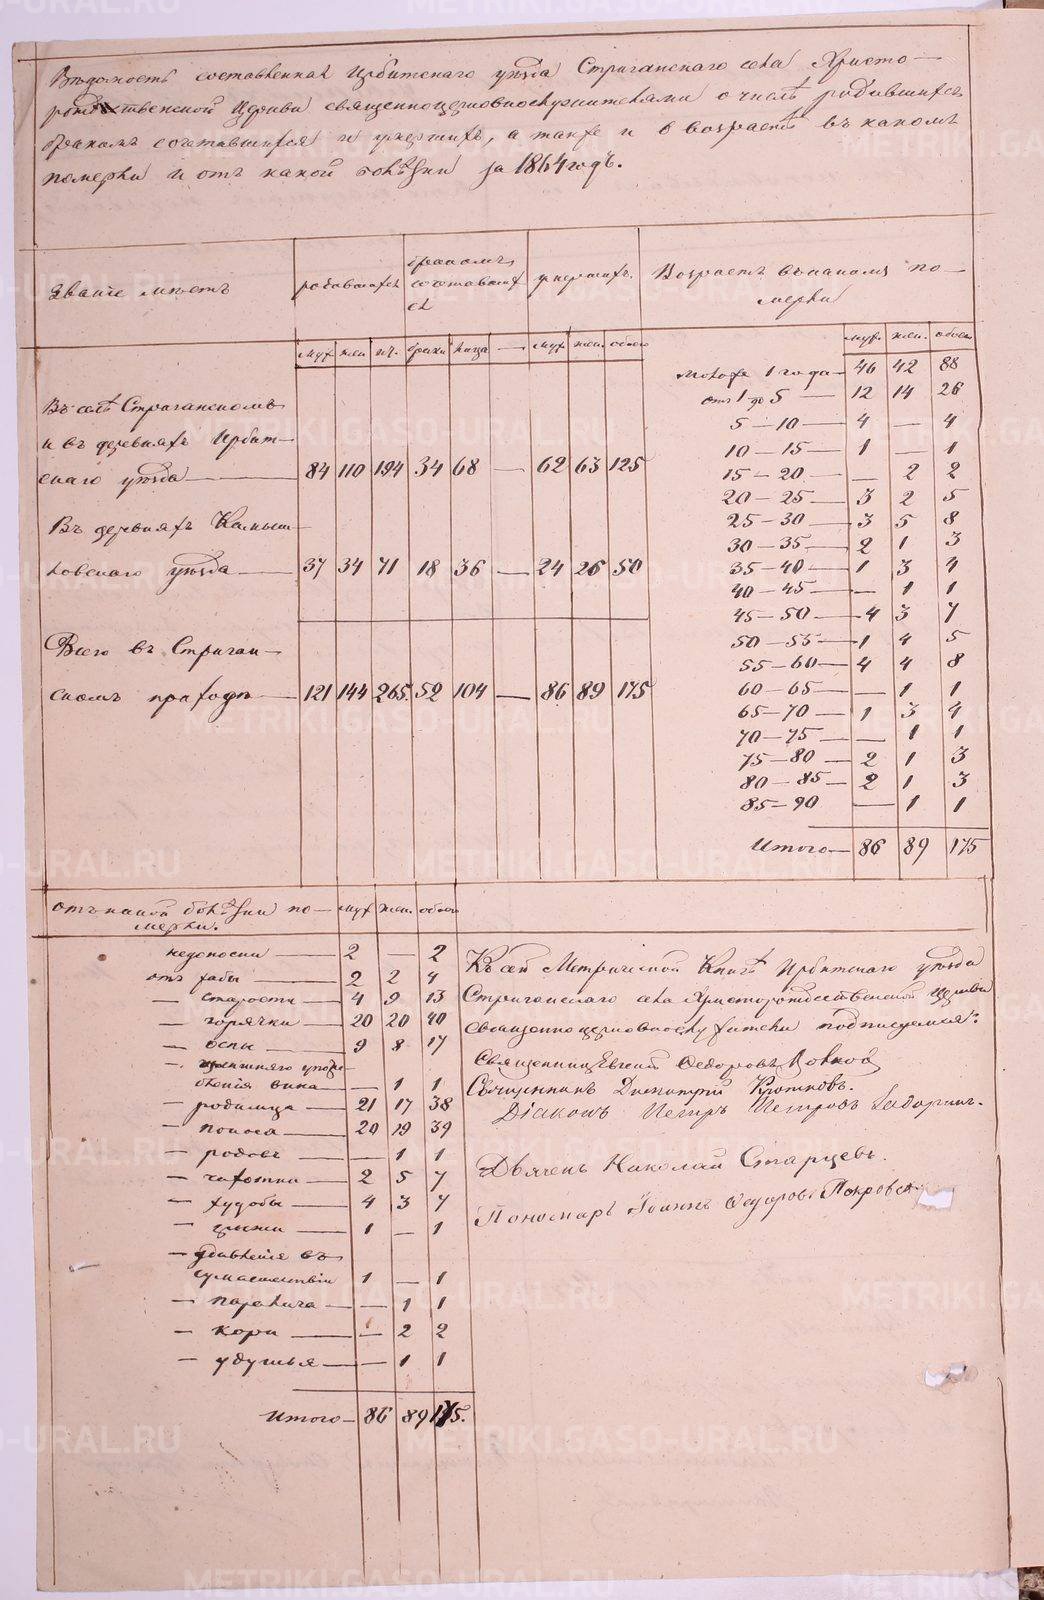 Вѣдомость составленная Ирбитскаго уѣзда Стриганскаго села Христо-
рождественской Церкви священноцерковнослужителями о числѣ родившихся
бракомъ сочетавшихся и умершихъ, а также и о возрастѣ въ какомъ
померли и отъ какой болѣзни за 1864 годъ.
Званіе мѣстъ родившихся бракомъ сочетавшихся умершихъ Возрастъ въ какомъ по-
мерли
муж жен об. браки лица — муж жен. обоего
муж. жен. обоего
Въ селѣ Стриганскомъ
и въ деревняхъ Ирбит-
скаго уѣзда — 84 110 194 34 68 — 62 63 125
Въ деревняхъ Камыш-
ловскаго уѣзда — 37 34 71 18 36 — 24 26 50
Всего въ Стриган-
скомъ приходѣ — 121 144 265. 52 104 — 86 89 175
Моложе 1 года — 46 42 88
отъ 1 до 5 — 12 14 26
5 — 10 — 4 — 4
10 — 15 — 1 — 1
15 — 20 — — 2 2
20 — 25 — 3 2 5
25 — 30 — 3 5 8
30 — 35 — 2 1 3
35 — 40 — 1 3 4
40 — 45 — — 1 1
45 — 50 — 4 3 7
50 — 55 — 1 4 5
55 — 60 — 4 4 8
60 — 65 — — 1 1
65 — 70 — 1 3 4
70 — 75 — — 1 1
75 — 80 — 2 1 3
80 — 85 — 2 1 3
85 — 90 — 1 1
Итого — 86 89 175
отъ какой болѣзни по- муж жен. обоего
мерли.
недоноски — 2 — 2
отъ жабы — 2 2 4
— старости — 4 9 13
— горячки — 20 20 40
— оспы — 9 8 17
— излишняго упот-
бленія вина — — 1 1
— родимца — 21 17 38
— поноса — 20 19 39
— родовъ — — 1 1
— чахотки — 2 5 7
— худобы — 4 3 7
— грыжи — 1 — 1
— убивненія въ
сумасшествіи 1 — 1
— паралича — — 1 1
— кори — — 2 2
— удушья — — 1 1
Итого — 86 89 175.
Къ сей Метрической Книгѣ Ирбитскаго уѣзда
Стриганскаго села Христорождественской Церкви
священноцерковнослужители подписуемся:
Священникъ Евгеній Ѳедоровъ
Священникъ Димитрій
Діаконъ Петръ Петровъ
Дьячекъ Николай Старцевъ.
Пономарь Іоаннъ Ѳедоровъ Покровск
METRIKI.GASO-URAL.RU